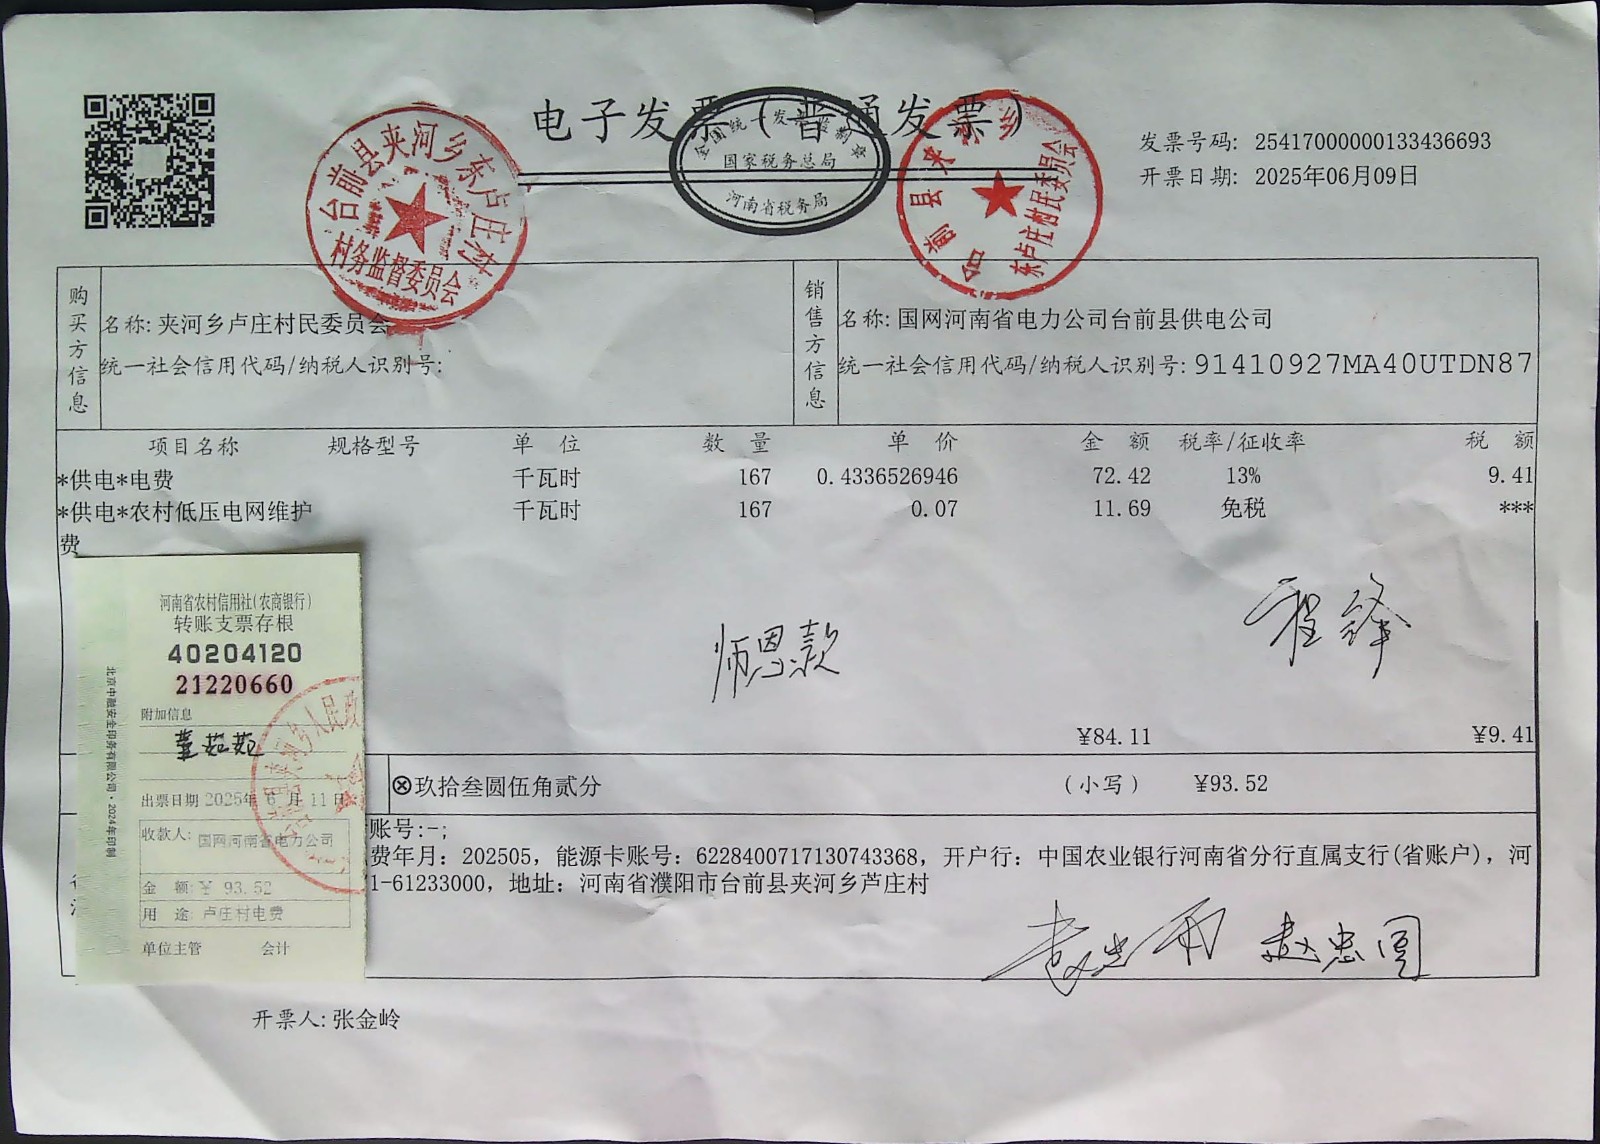 电子发票（普通发票）
全国统一发票监制章
国家税务总局
河南省税务局
发票号码: 25417000000133436693
开票日期: 2025年06月09日
台前县夹河乡东卢庄村
村务监督委员会
台前县夹河乡
东卢庄村民委员会
购买方信息
名称: 夹河乡卢庄村民委员会
统一社会信用代码/纳税人识别号:
销售方信息
名称: 国网河南省电力公司台前县供电公司
统一社会信用代码/纳税人识别号: 91410927MA40UTDN87
项目名称 规格型号 单 位 数 量 单 价 金 额 税率/征收率 税 额
*供电*电费 千瓦时 167 0.4336526946 72.42 13% 9.41
*供电*农村低压电网维护 千瓦时 167 0.07 11.69 免税 ***
费
程锋
师恩款
¥84.11 ¥9.41
⊗玖拾叁圆伍角贰分 (小写) ¥93.52
账号:-;
费年月: 202505, 能源卡账号: 6228400717130743368, 开户行: 中国农业银行河南省分行直属支行(省账户), 河
1-61233000, 地址: 河南省濮阳市台前县夹河乡芦庄村
赵忠国
河南省农村信用社(农商银行)
转账支票存根
40204120
21220660
附加信息
出票日期 2025年 6 月 11 日
收款人: 国网河南省电力公司
金 额: ¥ 93.52
用 途: 卢庄村电费
单位主管 会计
北京中融安全印务有限公司·2024年印制
开票人: 张金岭